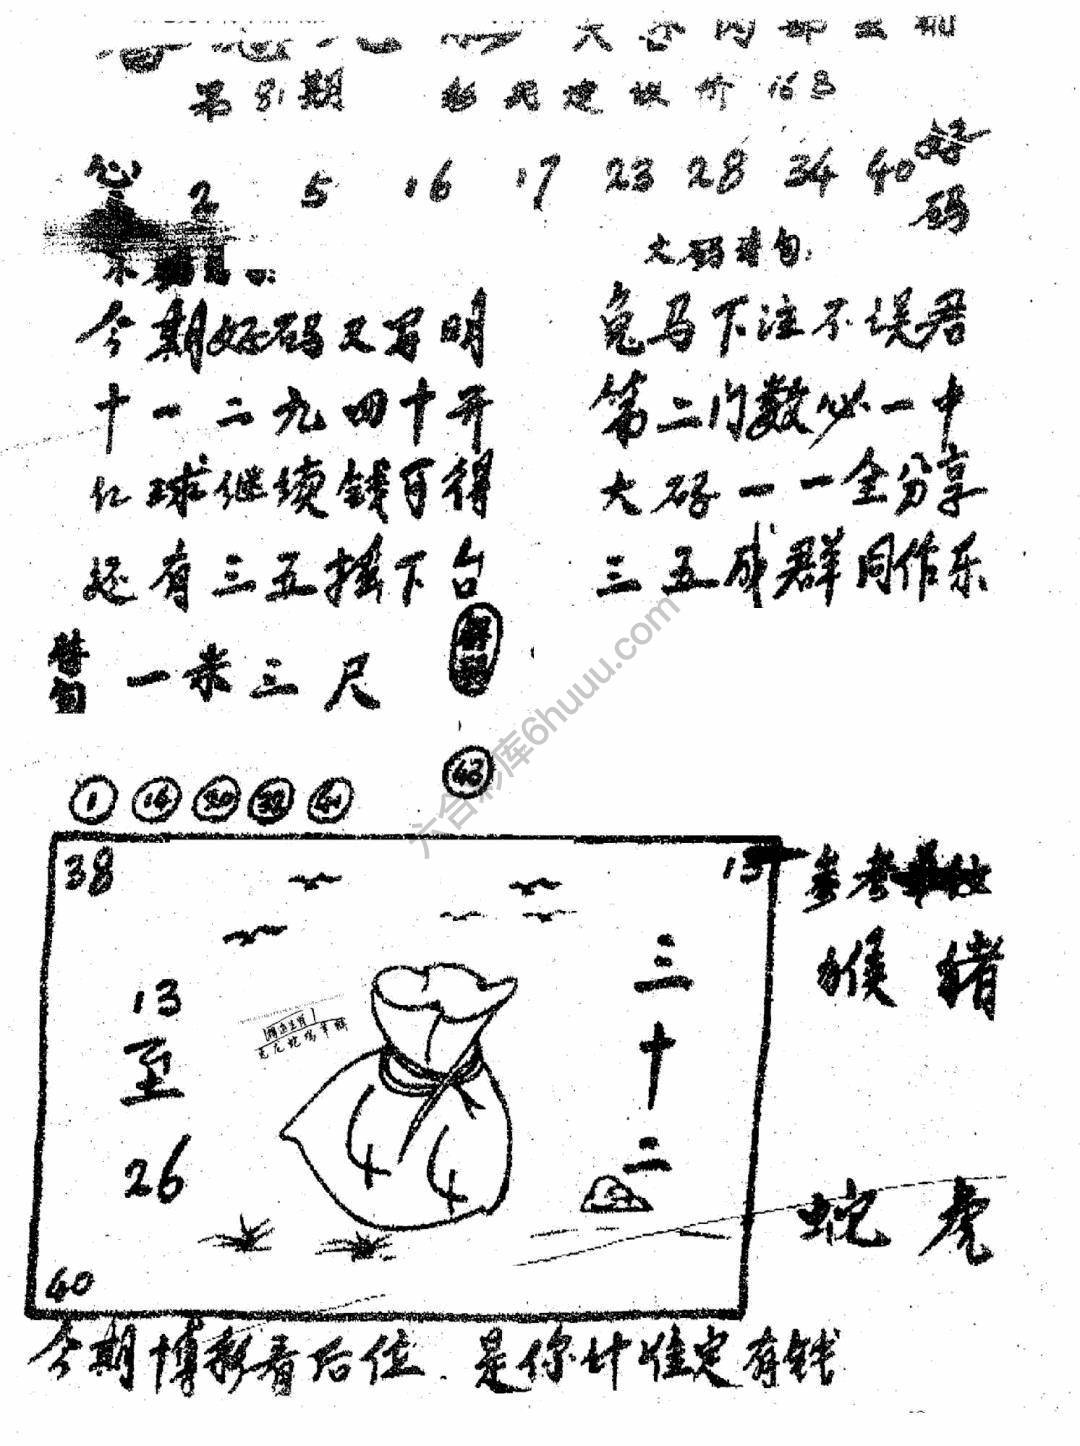 大 内部
第81期 建议价 16 3
心 2 5 16 17 23 28 34 40 好码
大码诗句:
今期好码又写明
十一二九四十开
仁球继续钱可得
还有三五摇下台
兔马下注不误君
第二门数必一中
大码一一全分享
三五成群同作乐
一米三尺
43
1 14 30 32 41
38 13
13至26
三十二
40
参考
猴 猪
蛇 虎
今期博彩看后位 是你计准定有钱
六合彩库6huuu.com